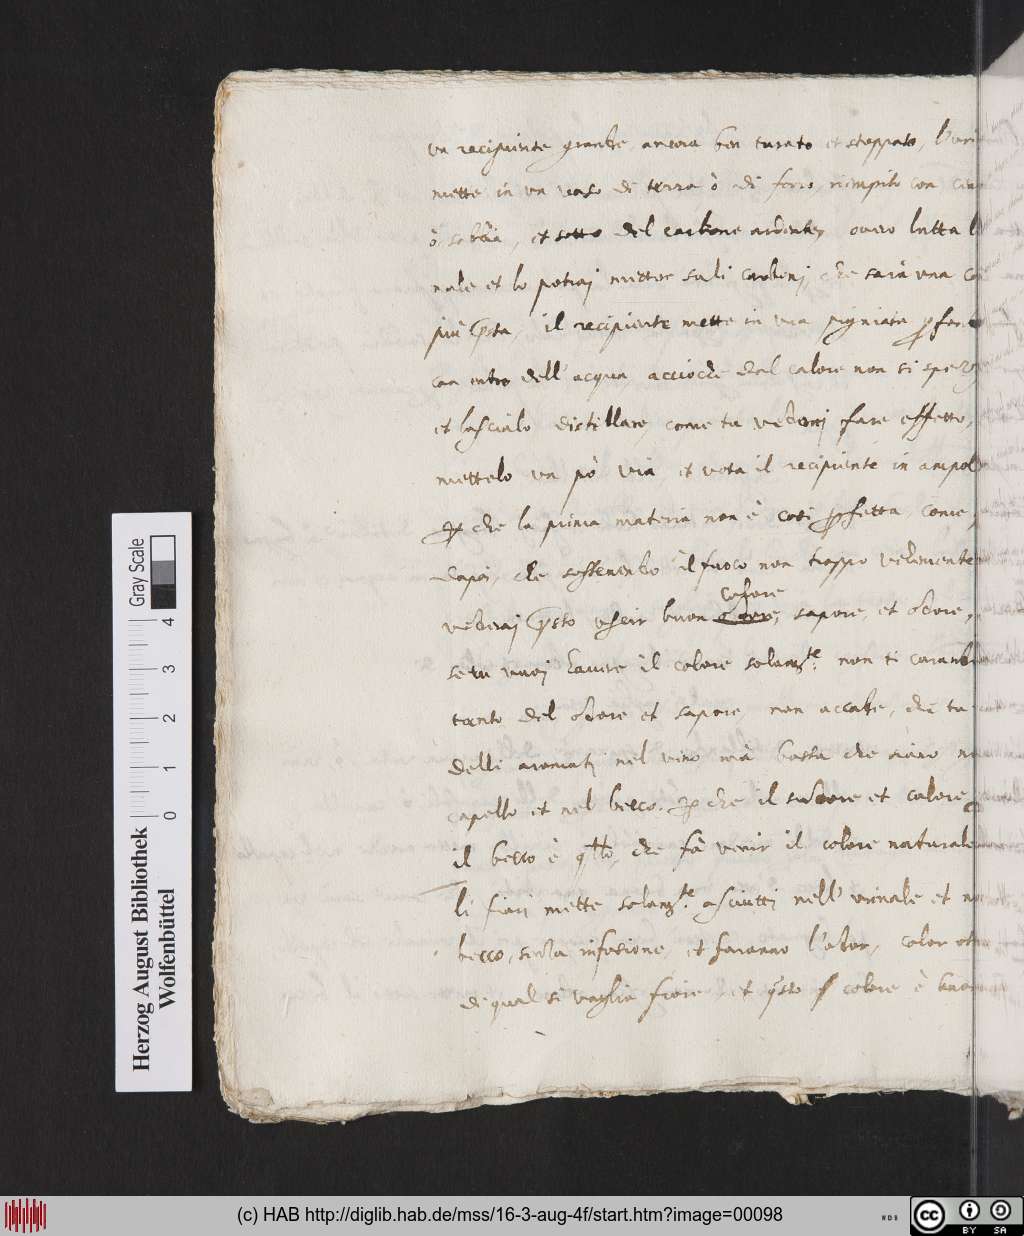 un recipiente grande, ancora ben turato et stoppato, l'uri
mette in un vaso di terra ò di ferro, riempito con
ò sabbia, et sotto del carbone ardente, overo lutta l
nale et lo potrai metter sul i carboni, che sarà una
più presta, il recipiente mette in una pigniata
con entro dell'acqua acciochè dal calore non si spez
et lascialo distillare, come tu vederai fare effetto,
mettelo un pò via, et vota il recipiente in ampol
per che la prima materia non è così perfetta, come,
dapoi, che sostenendo il fuoco non troppo vehemente
colore
vederai presto uscir buon odore, sapore, et odore,
se tu vuoi havere il colore solamte non ti
tanto del odore et sapore, non accade, che tu
delli aromati nel vino mà basta che siano
capello et nel becco, per che il sudore et calore
il becco è qllo, che fà venir il colore naturale
li fiori mette solamte asciutti nell'urinale et
becco, senza infusione, et faranno l'odor, color
di qual si voglia fiore, et qsto colore è
Herzog August Bibliothek
Wolfenbüttel
Gray Scale
0 1 2 3 4
(c) HAB http://diglib.hab.de/mss/16-3-aug-4f/start.htm?image=00098
WDB
cc BY SA